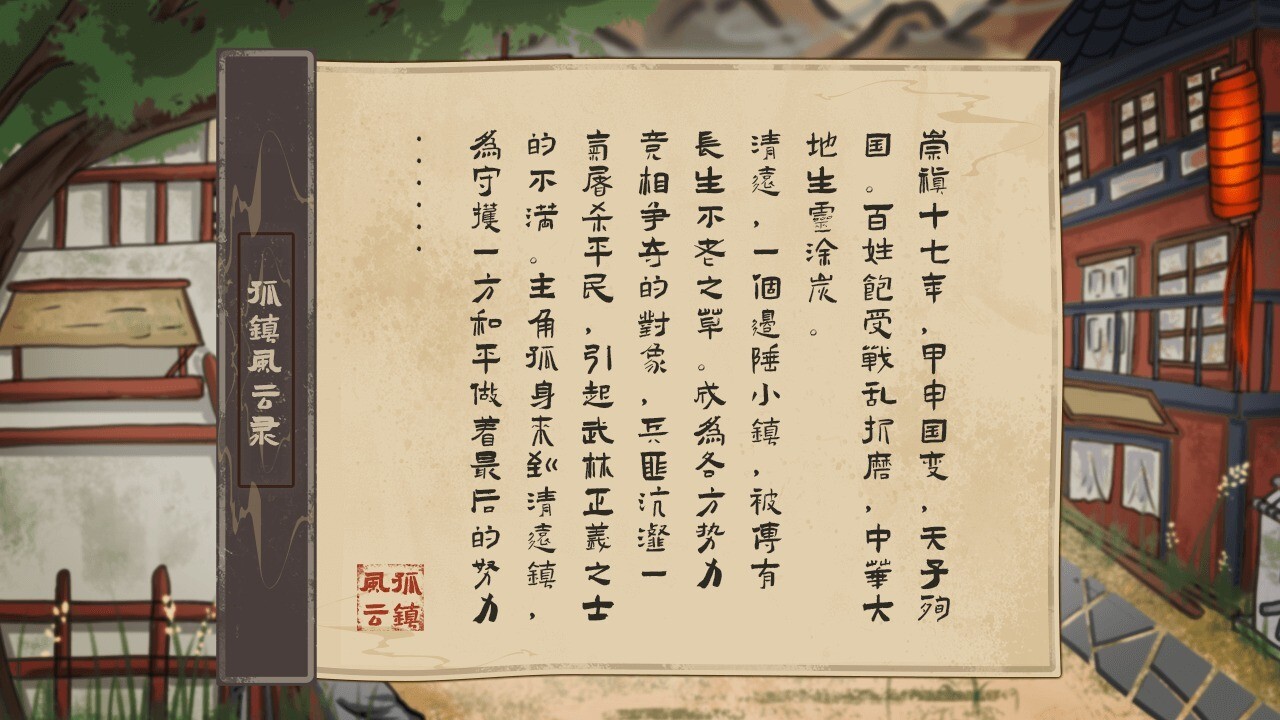 崇禎十七年，甲申国变，天子殉
国。百姓飽受戰乱折磨，中華大
地生靈涂炭。
清遠，一個邊陲小鎮，被傳有
長生不老之草。成為各方势力
竞相争夺的對象，兵匪沆瀣一
氣屠杀平民，引起武林正義之士
的不满。主角孤身来到清遠鎮，
為守擭一方和平做着最后的努力
······
孤鎮風云录
孤鎮
風云